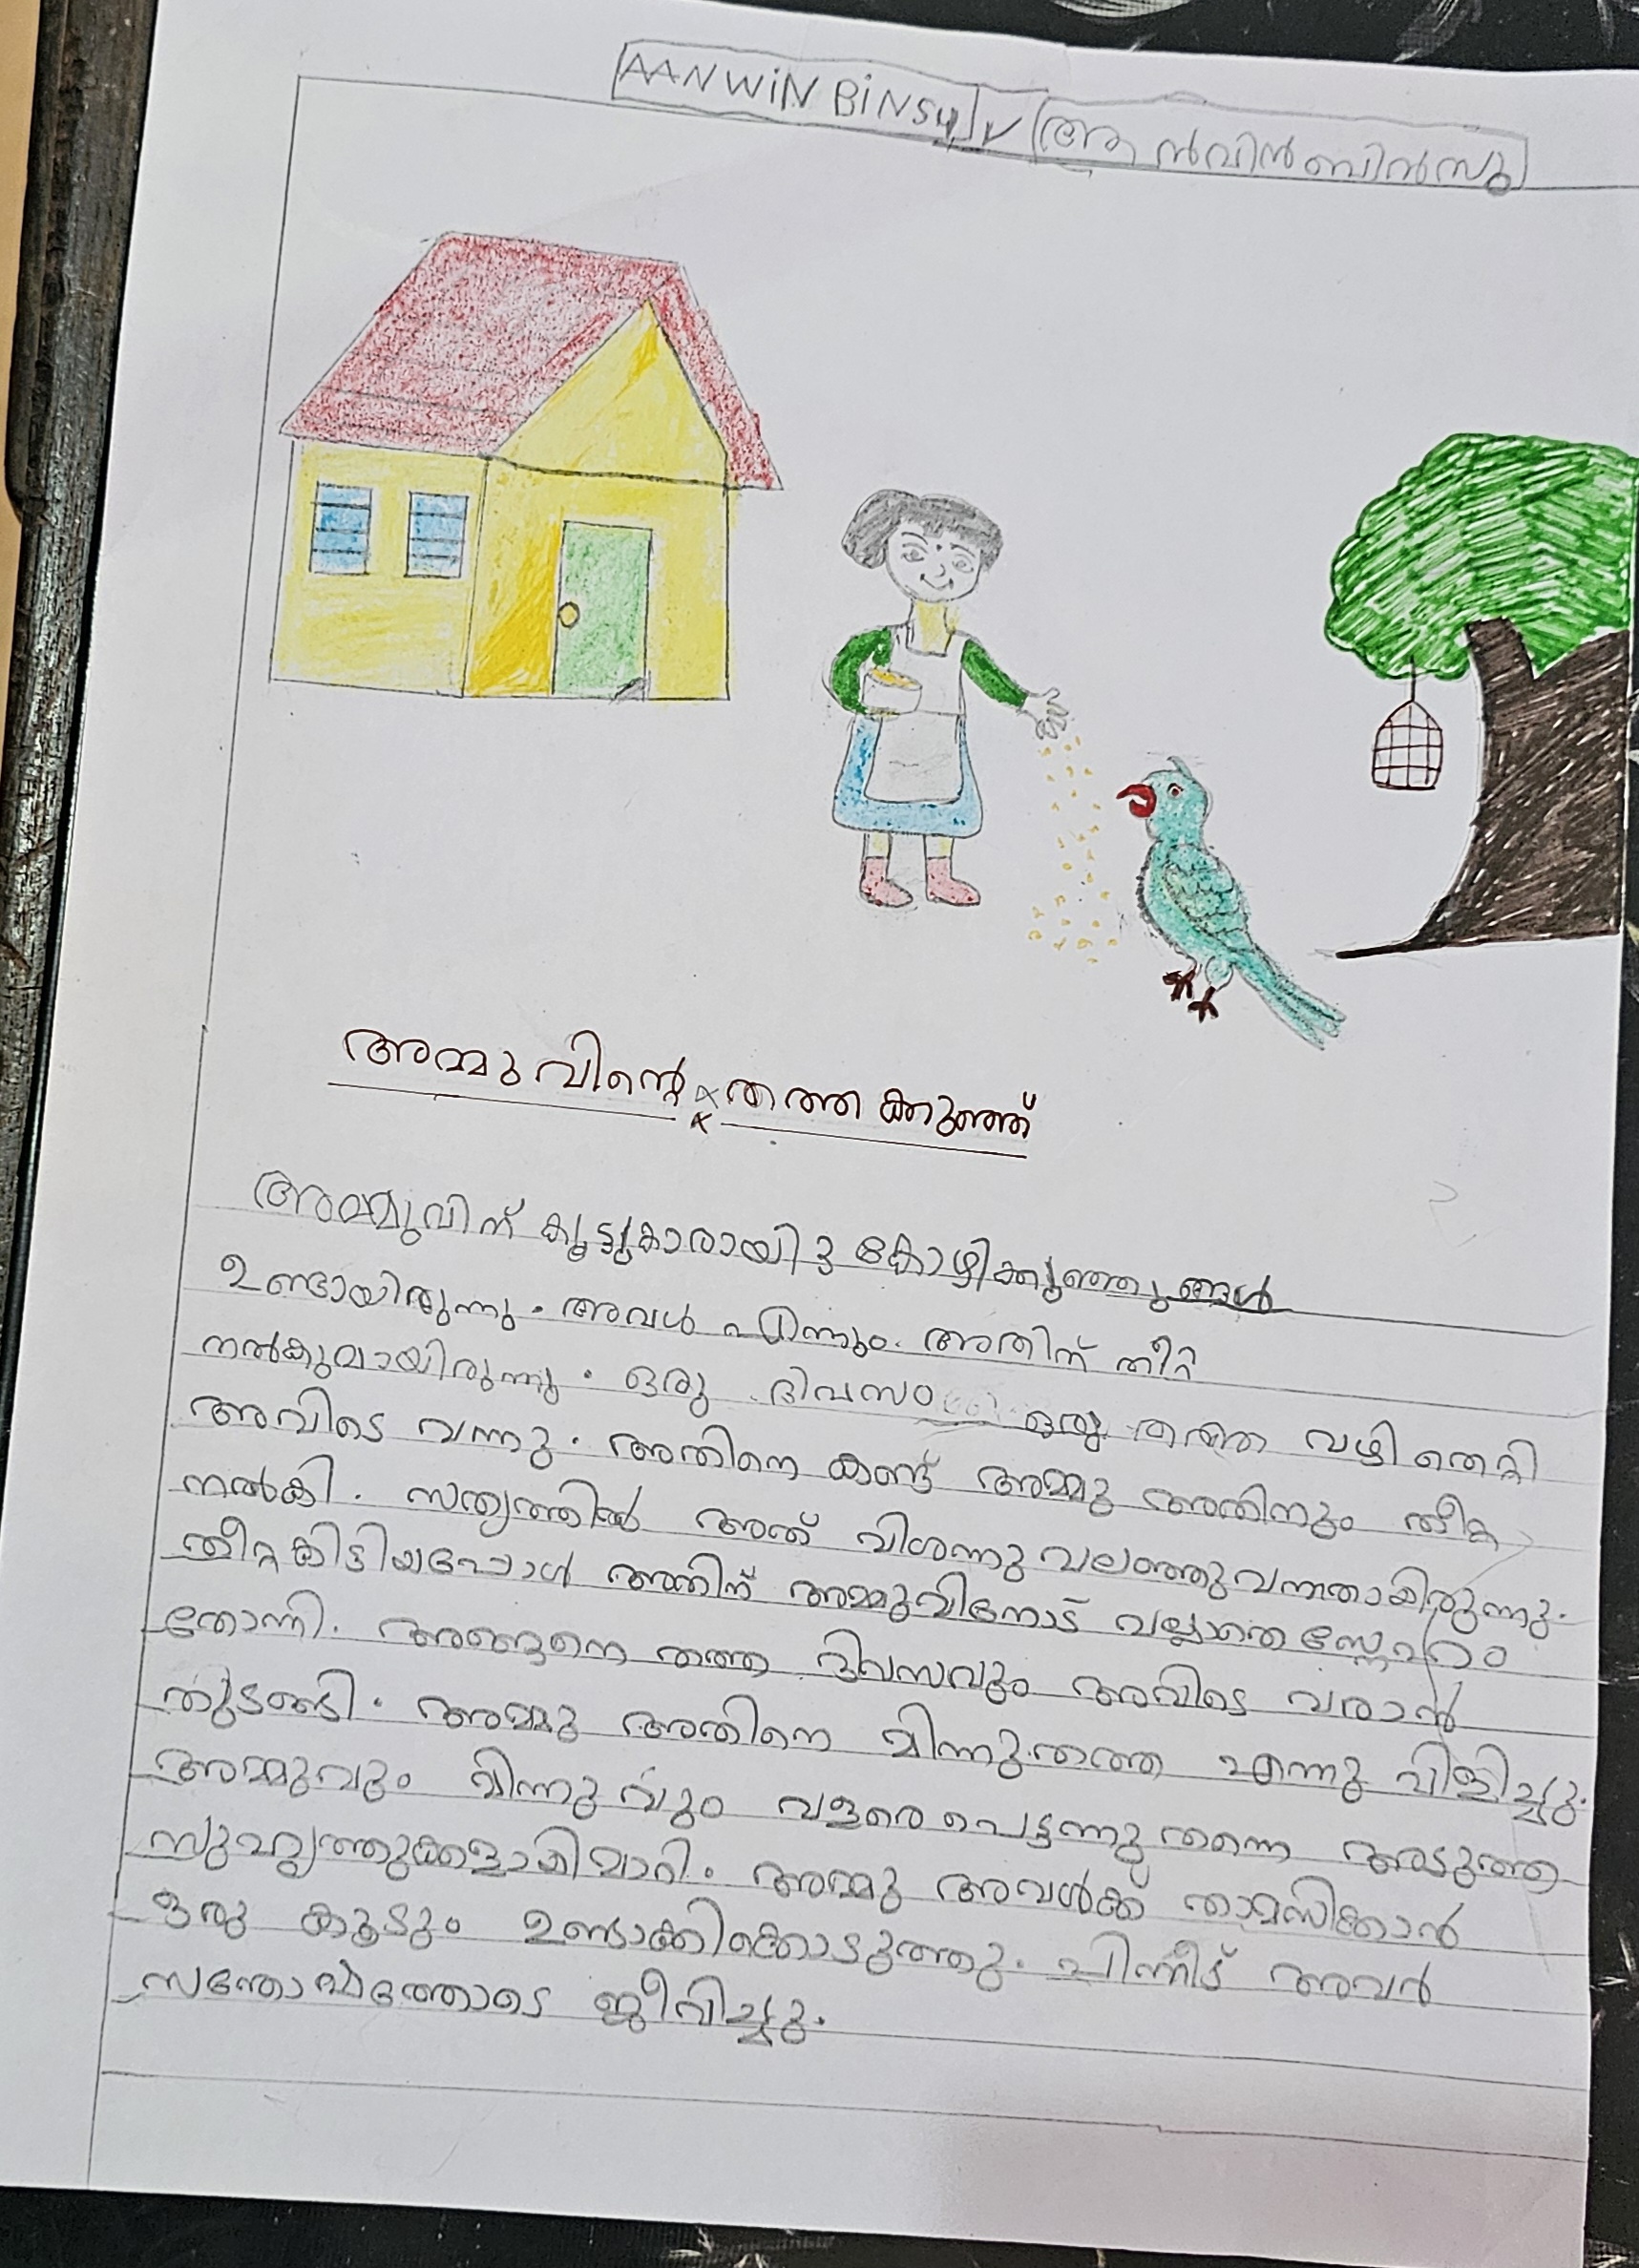 AANWIN BINSU V ആൻവിൻ ബിൻസു
അമ്മുവിന്റെ തത്തക്കുഞ്ഞ്
അമ്മുവിന് കൂട്ടുകാരായി 3 കോഴിക്കുഞ്ഞുങ്ങൾ
ഉണ്ടായിരുന്നു. അവൾ എന്നും അതിന് തീറ്റ
നൽകുമായിരുന്നു. ഒരു ദിവസം ഒരു തത്ത വഴി തെറ്റി
അവിടെ വന്നു. അതിനെ കണ്ട് അമ്മു അതിനും തീറ്റ
നൽകി. സത്യത്തിൽ അത് വിശന്നു വലഞ്ഞു വന്നതായിരുന്നു.
തീറ്റകിട്ടിയപ്പോൾ അതിന് അമ്മുവിനോട് വല്ലാത്ത സ്നേഹം
തോന്നി. അങ്ങനെ തത്ത ദിവസവും അവിടെ വരാൻ
തുടങ്ങി. അമ്മു അതിനെ മിന്നുതത്ത എന്നു വിളിച്ചു.
അമ്മുവും മിന്നുവും വളരെ പെട്ടന്നു തന്നെ അടുത്ത
സുഹൃത്തുക്കളായിമാറി. അമ്മു അവൾക്ക് താമസിക്കാൻ
ഒരു കൂടും ഉണ്ടാക്കിക്കൊടുത്തു. പിന്നീട് അവർ
സന്തോഷത്തോടെ ജീവിച്ചു.